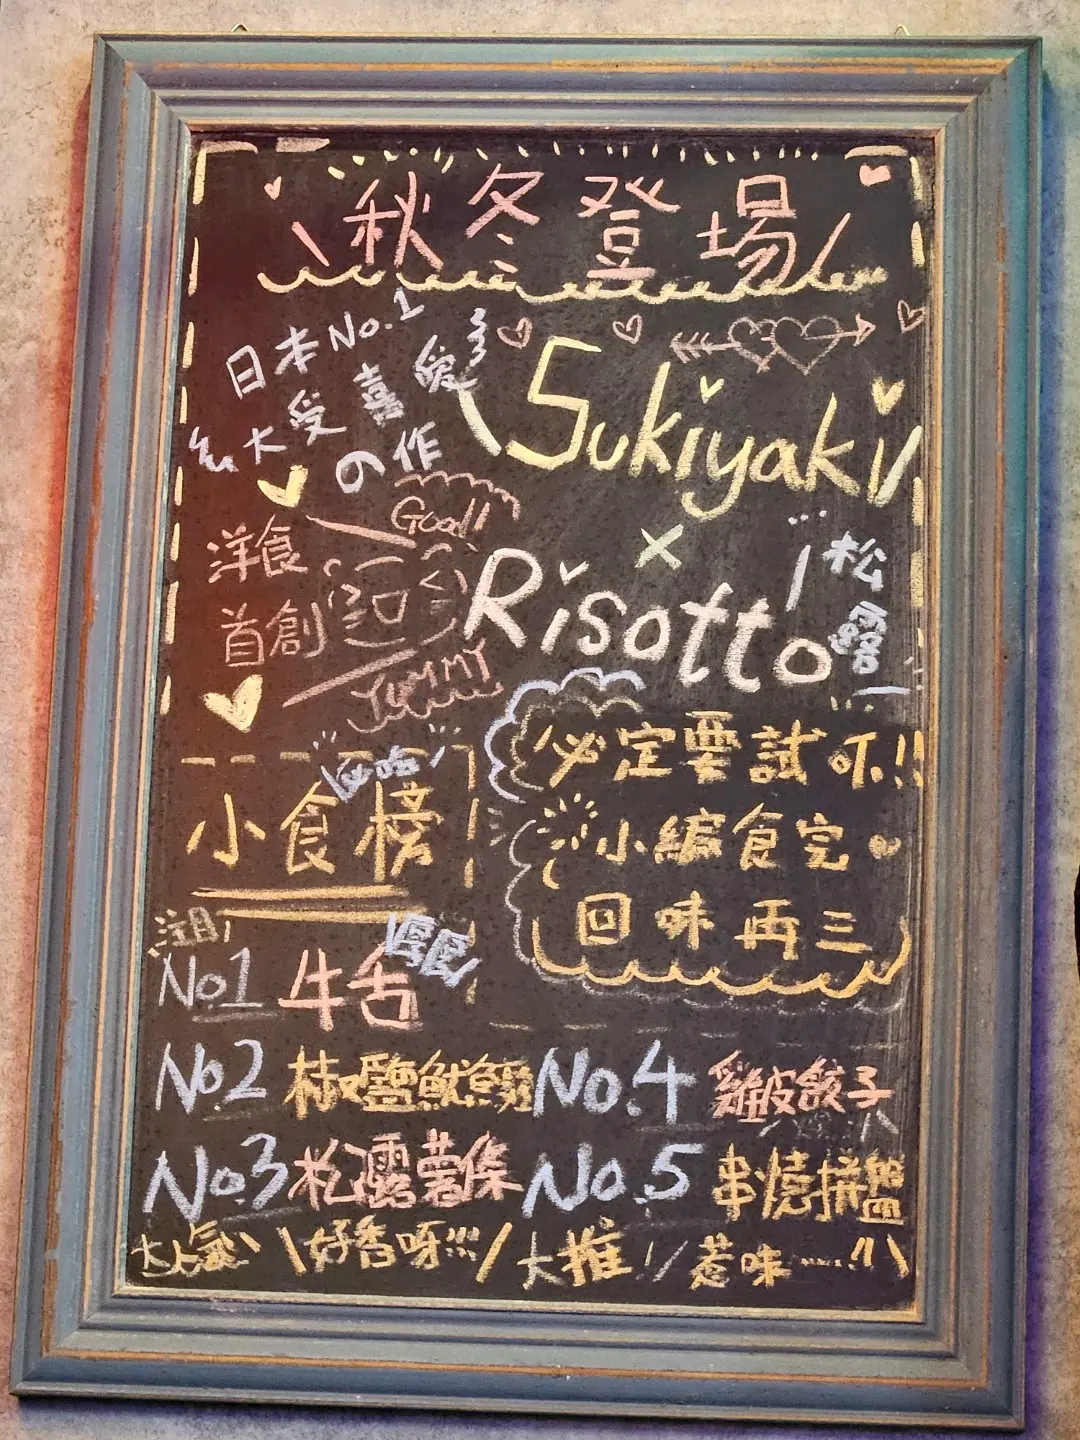 秋冬登場
日本No.1
大受喜愛
の作
Sukiyaki
×
Risotto
松露
洋食
首創
Good!!
YUMMY
小食榜
必定要試吓!!
小編食完
回味再三
注目!
No.1 牛舌 厚厚
No.2 椒鹽魷鬚
No.3 松露薯條
No.4 雞皮餃子
No.5 串燒拼盤
大人氣
好香呀!!!
大推!!
惹味……!!